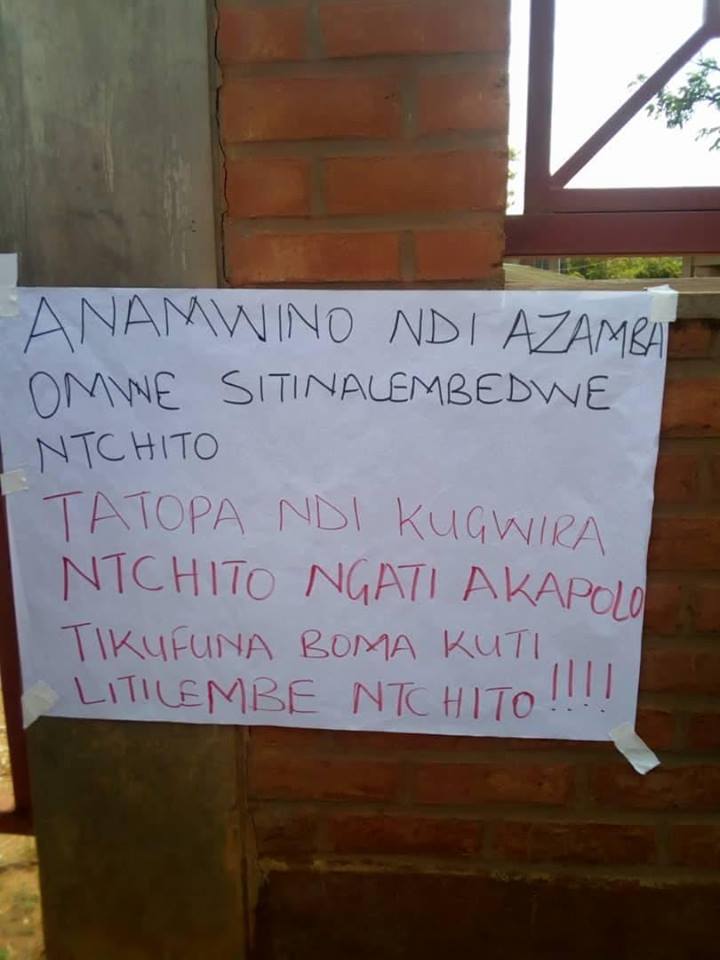 ANAMWINO NDI AZAMBA
OMWE SITINALEMBEDWE
NTCHITO
TATOPA NDI KUGWIRA
NTCHITO NGATI AKAPOLO
TIKUFUNA BOMA KUTI
LITILEMBE NTCHITO!!!!